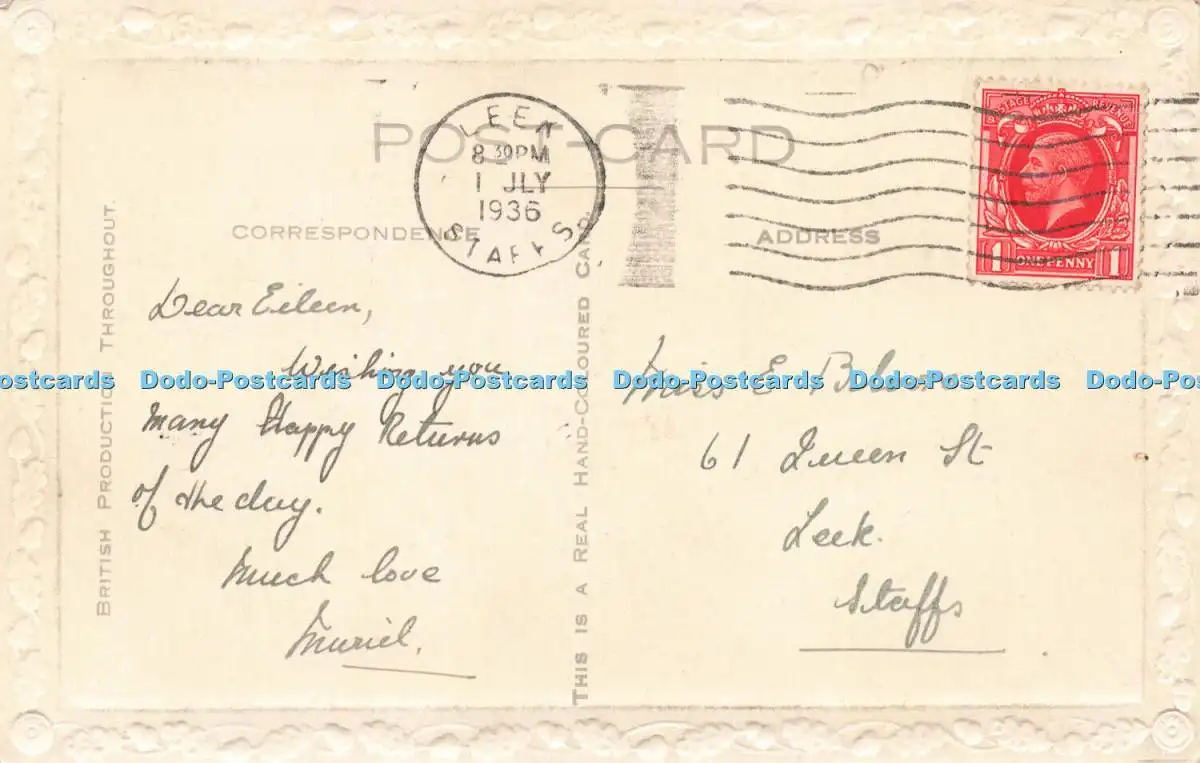 POST-CARD
LEEK
8 30PM
1 JLY
1936
STAFFS
POSTAGE REVENUE
1 ONE PENNY 1
CORRESPONDENCE
ADDRESS
BRITISH PRODUCTION THROUGHOUT.
THIS IS A REAL HAND-COLOURED CARD.
Dear Eileen,
Wishing you
Many Happy Returns
of the day.
Much love
Muriel.
Miss E
61 Queen St
Leek.
Staffs
Dodo-Postcards Dodo-Postcards Dodo-Postcards Dodo-Postcards Dodo-Postcards Dodo-Postcards